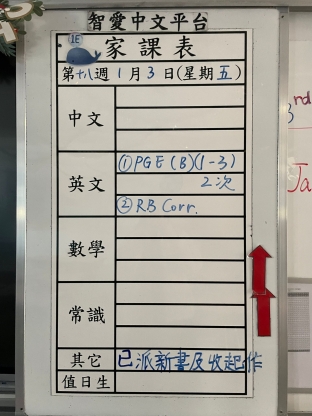 智愛中文平台
1E
家課表
第十八週 1月3日(星期五)
中文
英文
①PGE(B)(1-3)
2次
②RB Corr.
數學
常識
其它
已派新書及收起作
值日生
rd
Ja